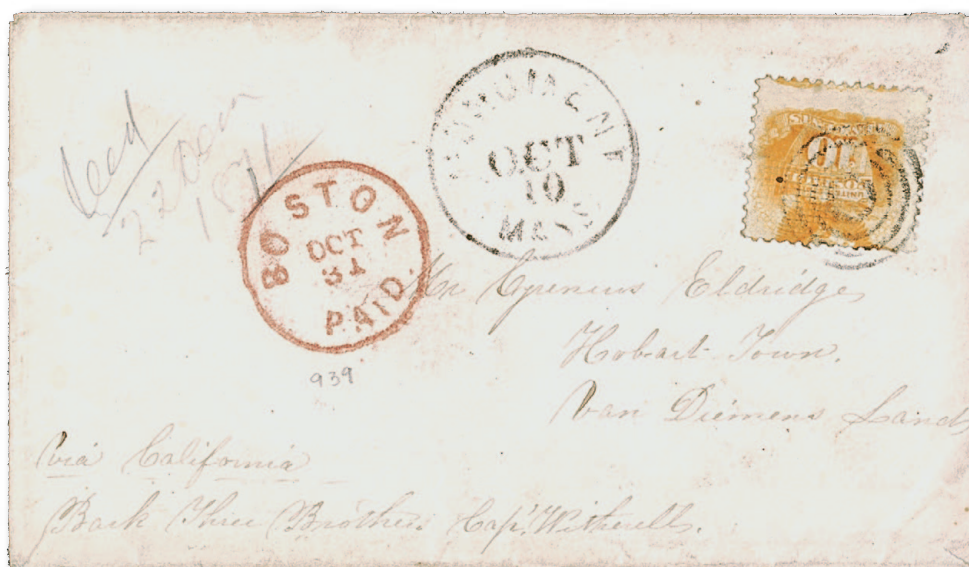 Recd
22 Decr
1871
BOSTON
OCT
31
PAID.
OCT
10
MASS
939
Mr Cyrenius Eldridge
Hobart Town.
Van Diemens Land
via California
Bark Three Brothers Capt Witherells.